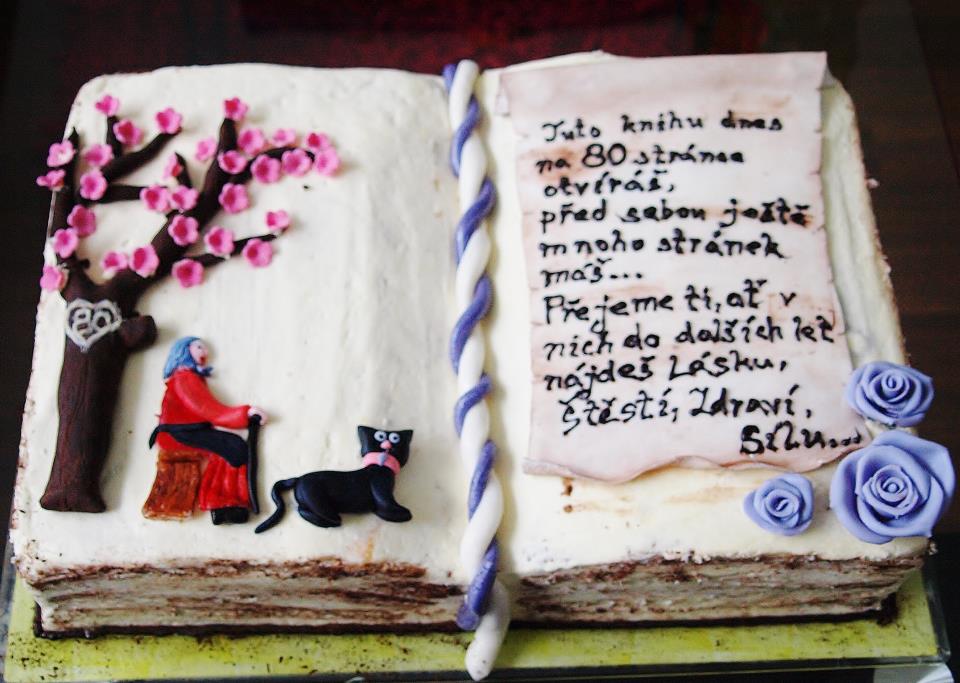 80
Tuto knihu dnes
na 80 stránce
otvíráš,
před sebou ještě
mnoho stránek
máš...
Přejeme ti, ať v
nich do dalších let
nájdeš Lásku,
štěstí, Zdraví,
Sílu...